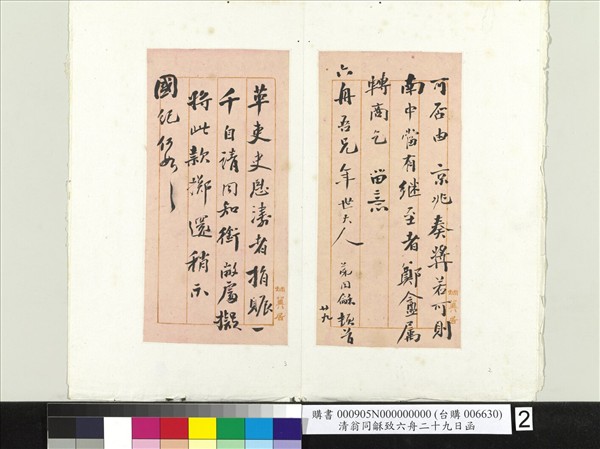 可否由 京兆奏獎若可則
南中當有継至者鄭盦属
轉商乞 留意
六舟吾兄年世大人 弟同龢頓首
廿九
革吏史恩濤者捐賑一
千自請同知銜敝處擬
將此款擲還稍示
國紀何如
購書 000905N000000000 (台購 006630)
清翁同龢致六舟二十九日函
2